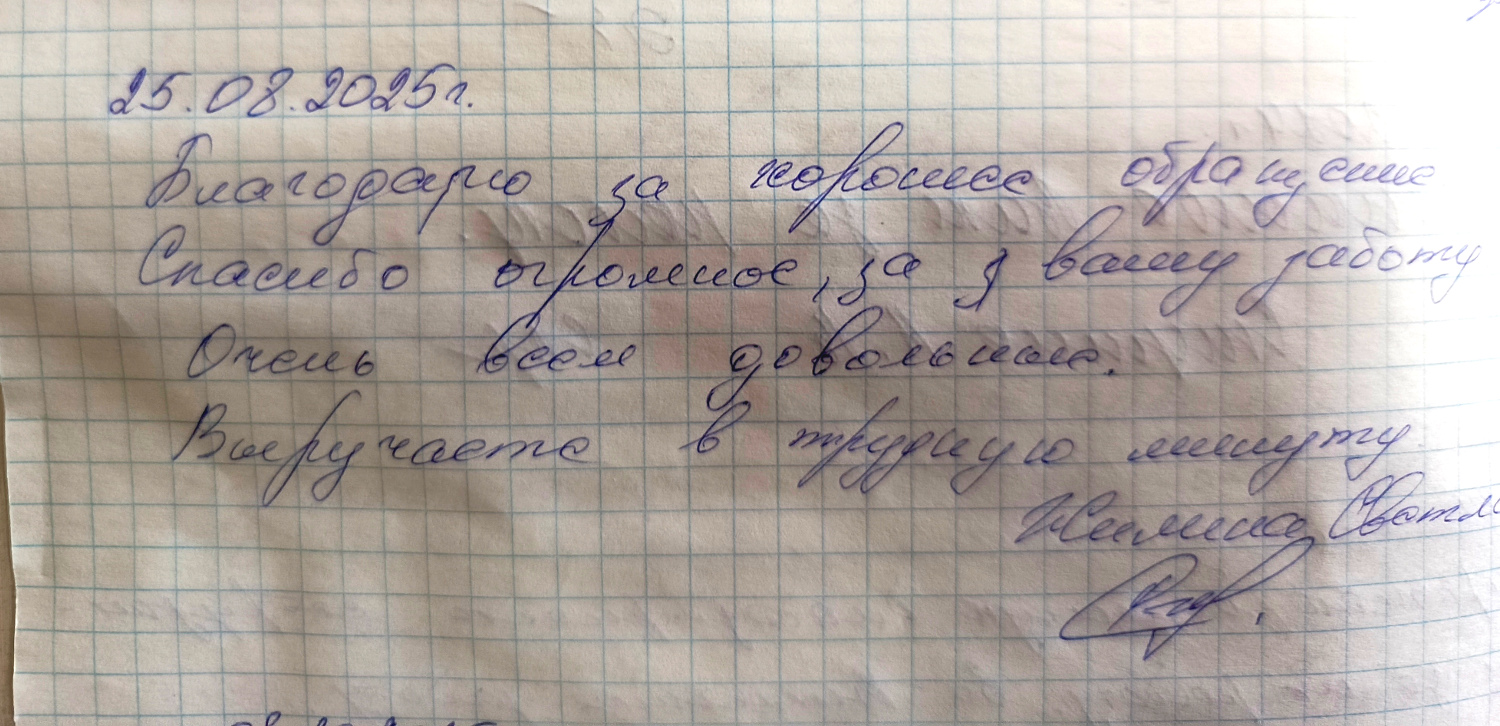 25.08.2025г.
Благодарю за хорошее обращение
Спасибо огромное, за вашу заботу
Очень всем довольные.
Выручаете в трудную минуту